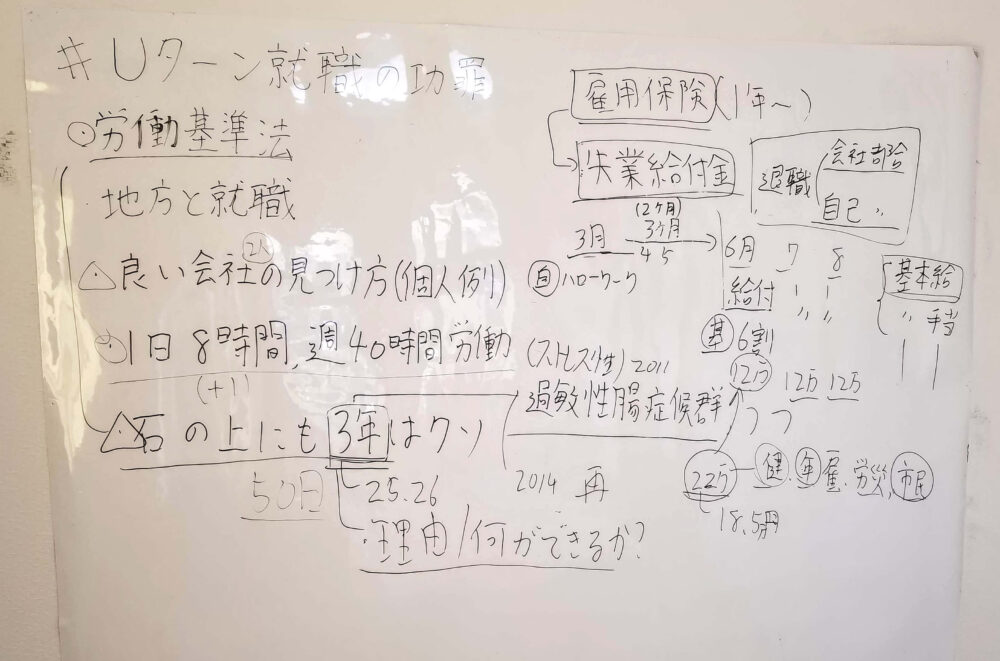 # Uターン就職の功罪
労働基準法
地方と就職
良い会社の見つけ方(個人例)
2人
1日8時間、週40時間労働
(+1)
石の上にも3年はクソ
50日
25.26
理由/何ができるか?
雇用保険(1年〜)
失業給付金
退職
会社都合
自己 〃
3月
(2ヶ月)
3ヶ月
45
6月 7 8
給付 〃 〃
自 ハローワーク
基本給
〃 手当
基 6割
12万 12万 12万
(ストレス性) 2011
過敏性腸症候群
2014 再
22万 健.年.雇.労災.市民
18.5万円